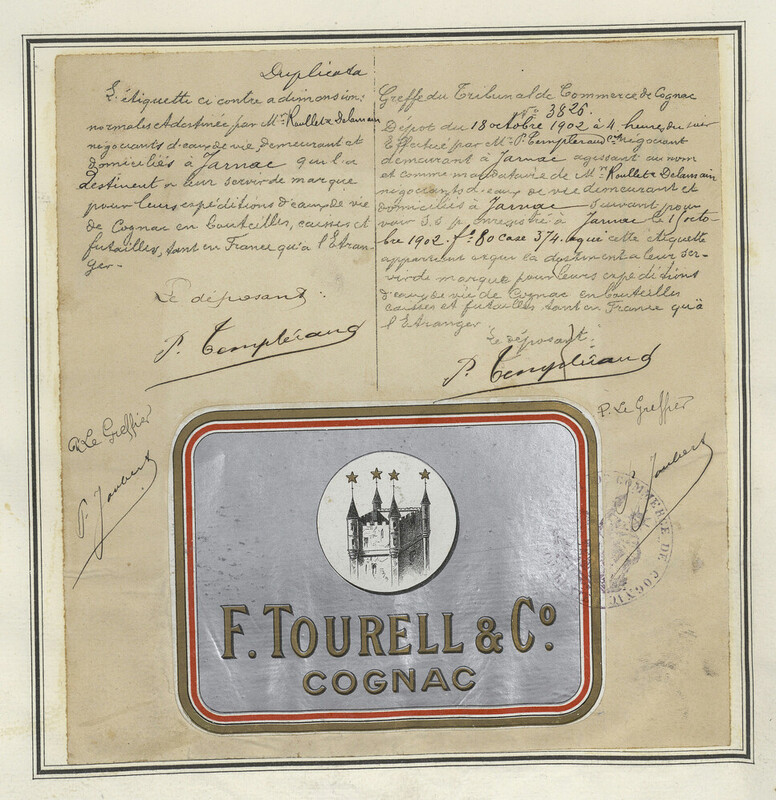 Duplicata
L'étiquette ci contre a dimensions
normales est destinée par Mrs Roullet & Delamain
négociants d'eaux de vie, demeurant et
domiciliés à Jarnac qui l'a
destinent a leur servir de marque
pour leurs expéditions d'eaux de vie
de Cognac en bouteilles, caisses et
futailles, tant en France qu'a l'Etran-
ger.-
Le déposant:
P. Templéraud
P. Le Greffier
P. Joubert
Greffe du Tribunal de Commerce de Cognac
No 3826.
Dépot du 18 octobre 1902 à 4 heures du soir
Effectué par Mr P. Templéraud négociant
demeurant à Jarnac agissant au nom
et comme mandataire de Mrs Roullet & Delamain
négociants d'eaux de vie demeurant et
domiciliés à Jarnac suivant pou-
voir S.S.p. enregistré à Jarnac le octo-
bre 1902. fo 80 case 374. a qui cette étiquette
appartient et qui la destinent a leur ser-
vir de marque pour leurs expeditions
d'eaux de vie de Cognac en bouteilles
caisses et futailles tant en France qu'à
l'Etranger
Le déposant.
P. Templéraud
P. Le Greffier
P. Joubert
COMMERCE DE COGNAC
F. TOURELL & Co.
COGNAC